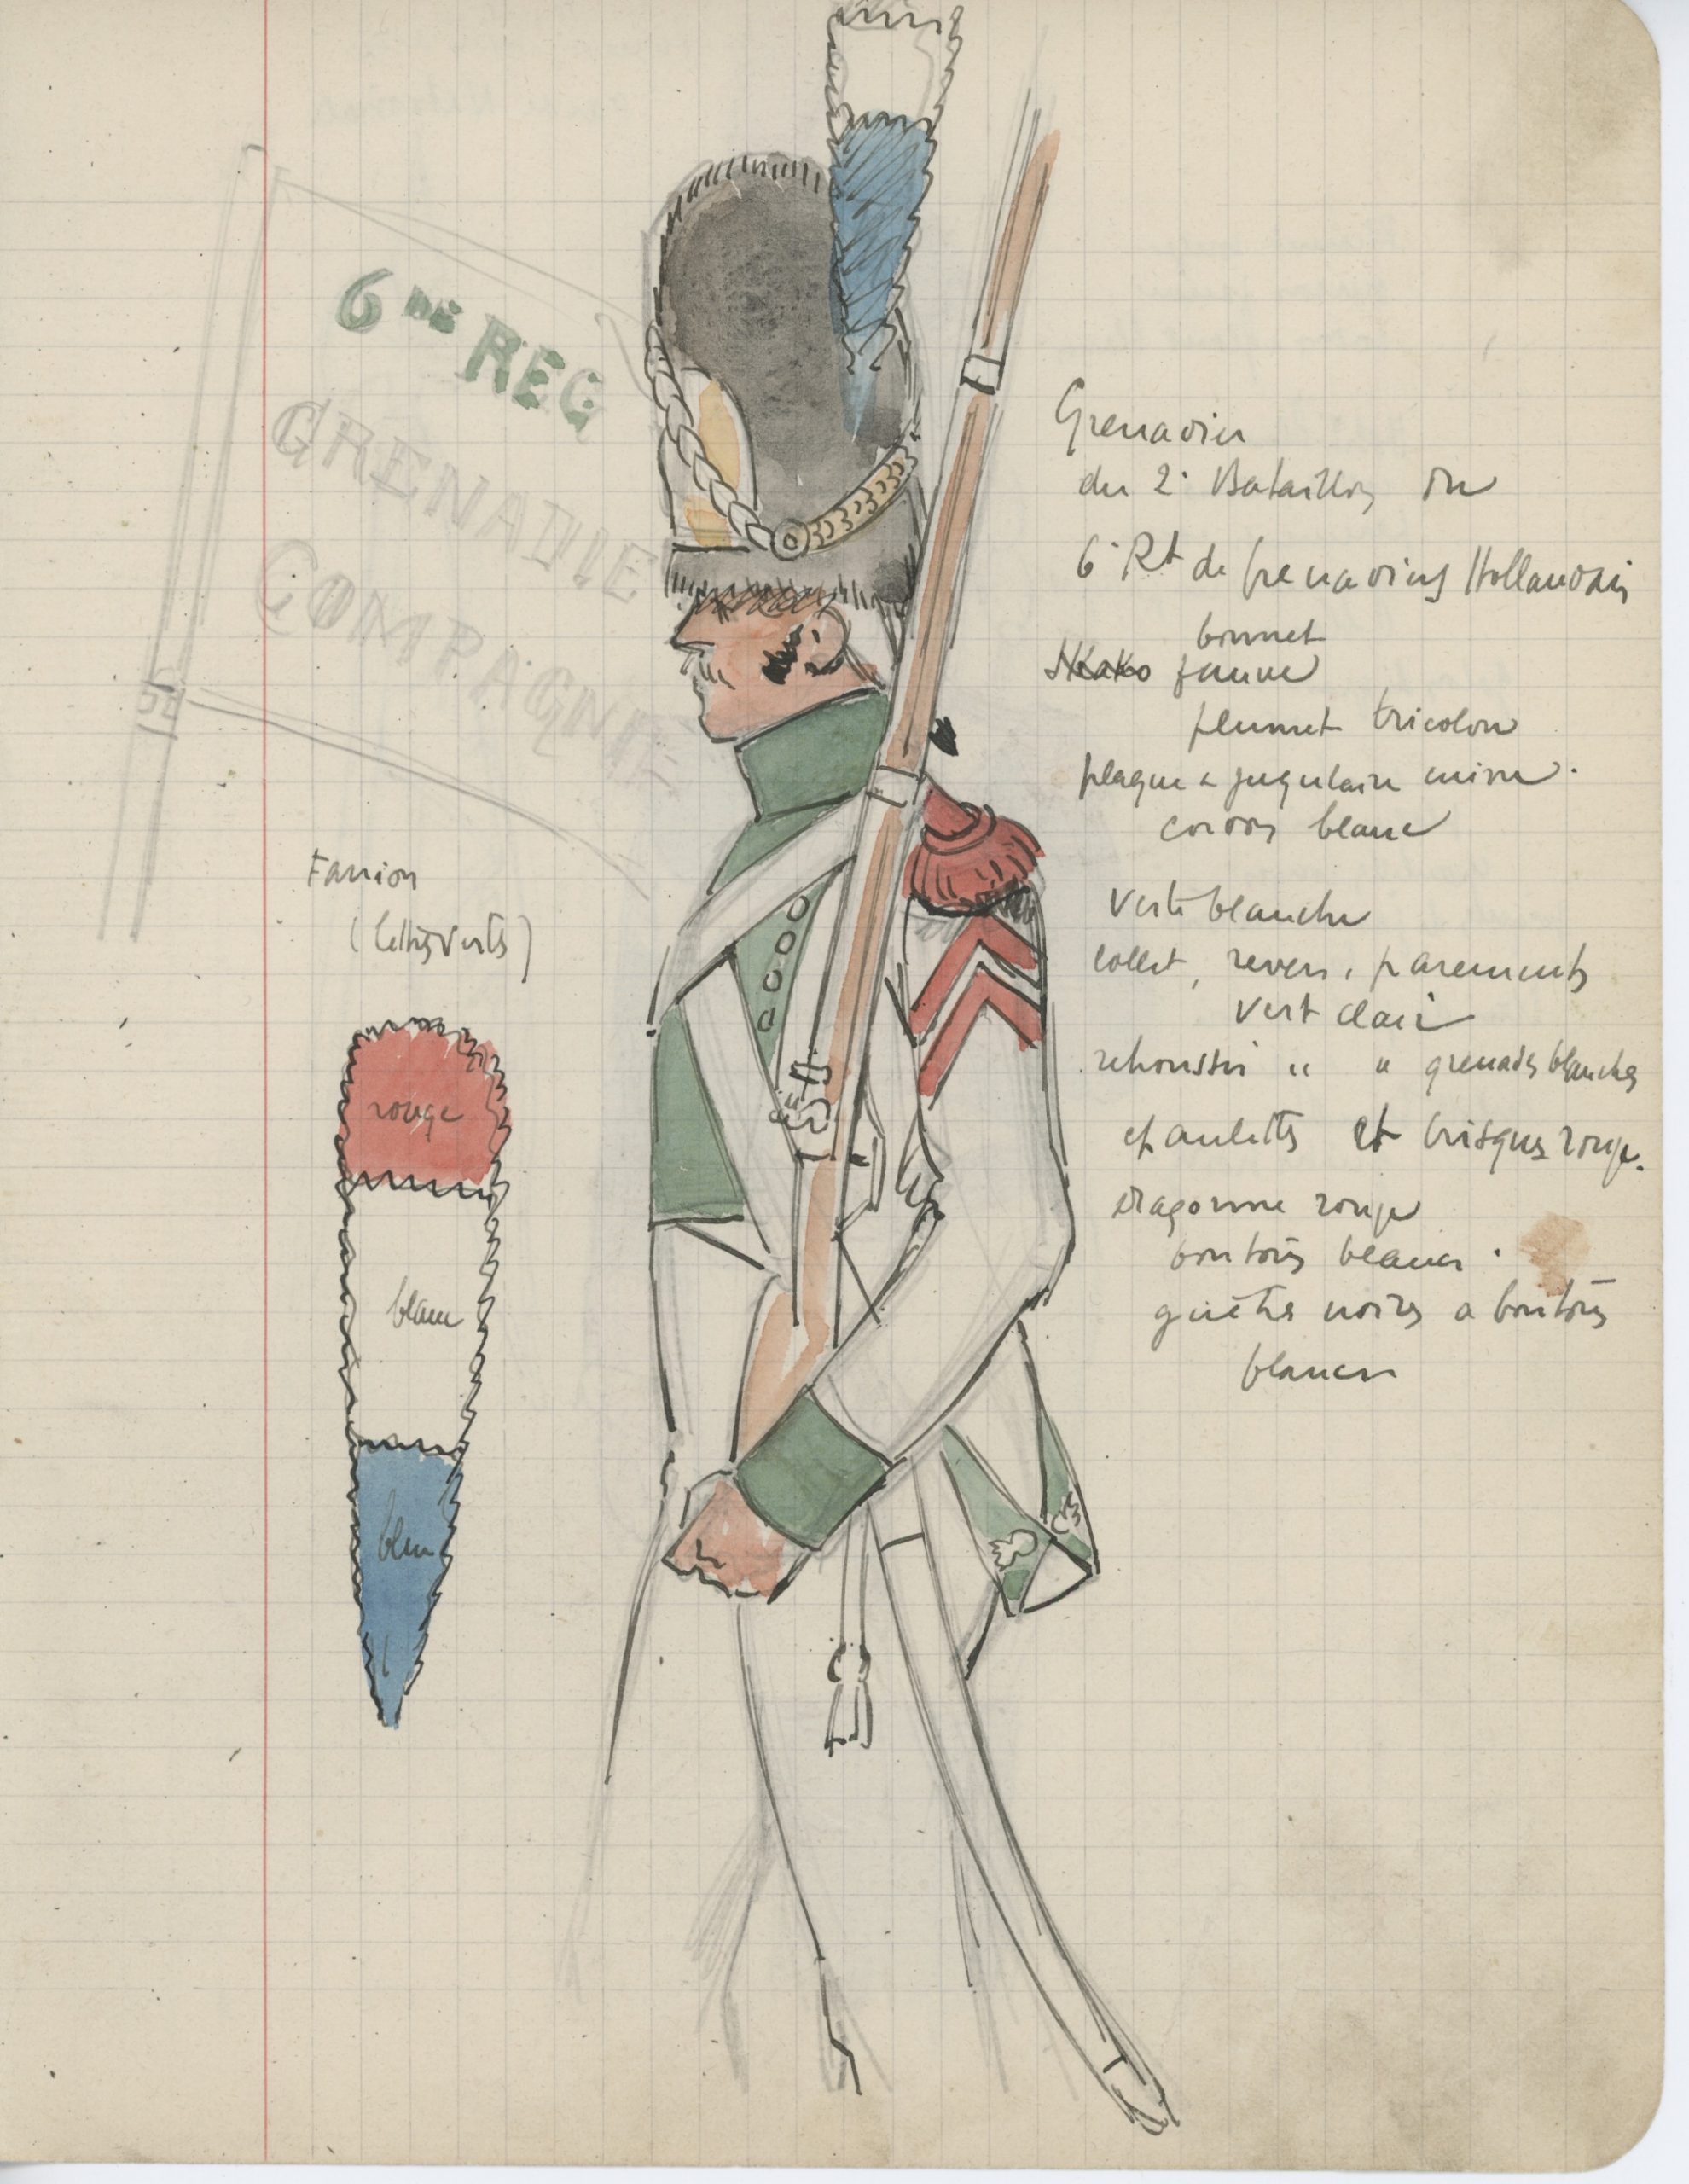 6DE REG
GRENADIE
COMPAGNIE
Fanion
(lettres vertes)
rouge
blanc
bleu
Grenadier
du 2e Bataillon du
6e Rt de Grenadiers Hollandais
bonnet
Skako jaune
plumet tricolore
plaque & jugulaire cuivre.
cordon blanc
Veste blanche
collet, revers, parements
vert clair
retroussis " " grenades blanches
epaulettes et brisques rouge.
dragonne rouge
boutons blancs.
guêtres noires a boutons
blancs